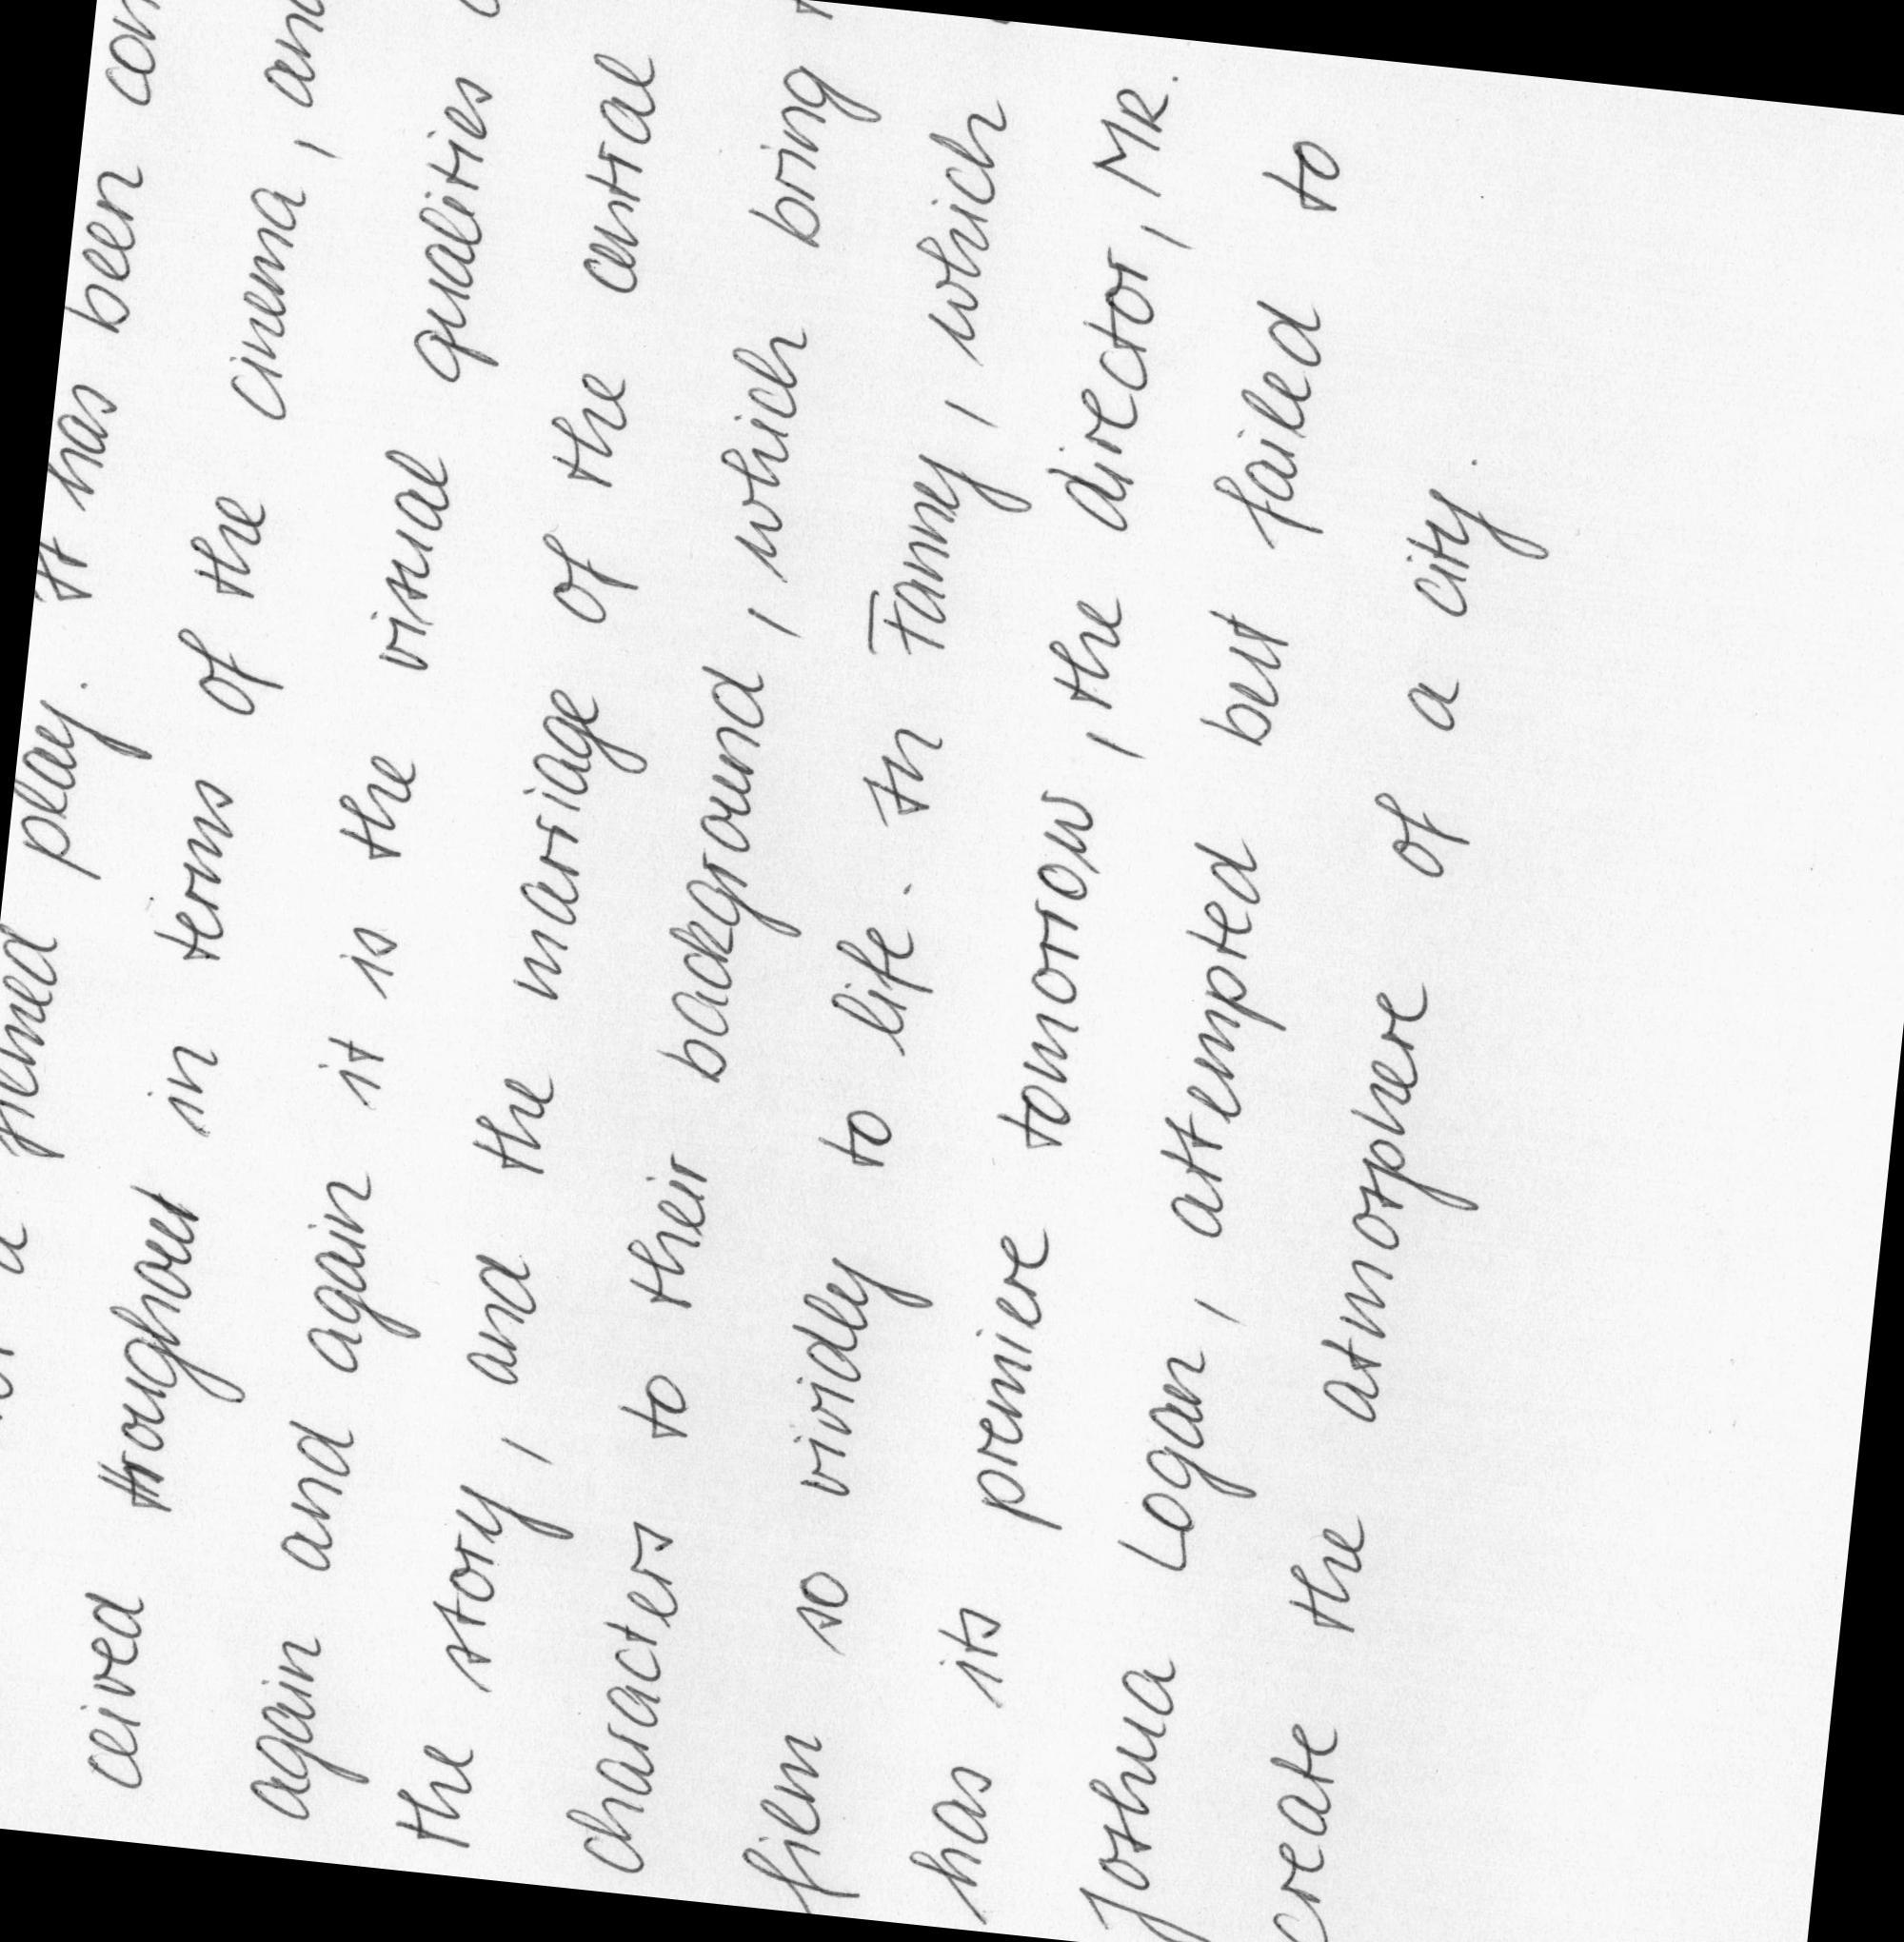 a filmed play. It has been con
ceived troughout in terms of the cinema, and
again and again it is the visual qualities
the story, and the marriage of the central
characters to their background, which bring
film so vividly to life. In Fanny, which
has its premiere tomorrow, the director, MR.
Joshua Logan, attempted but failed to
create the atmosphere of a city.